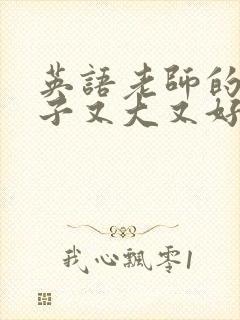 英語老師的
子又大又好
我心飄零1